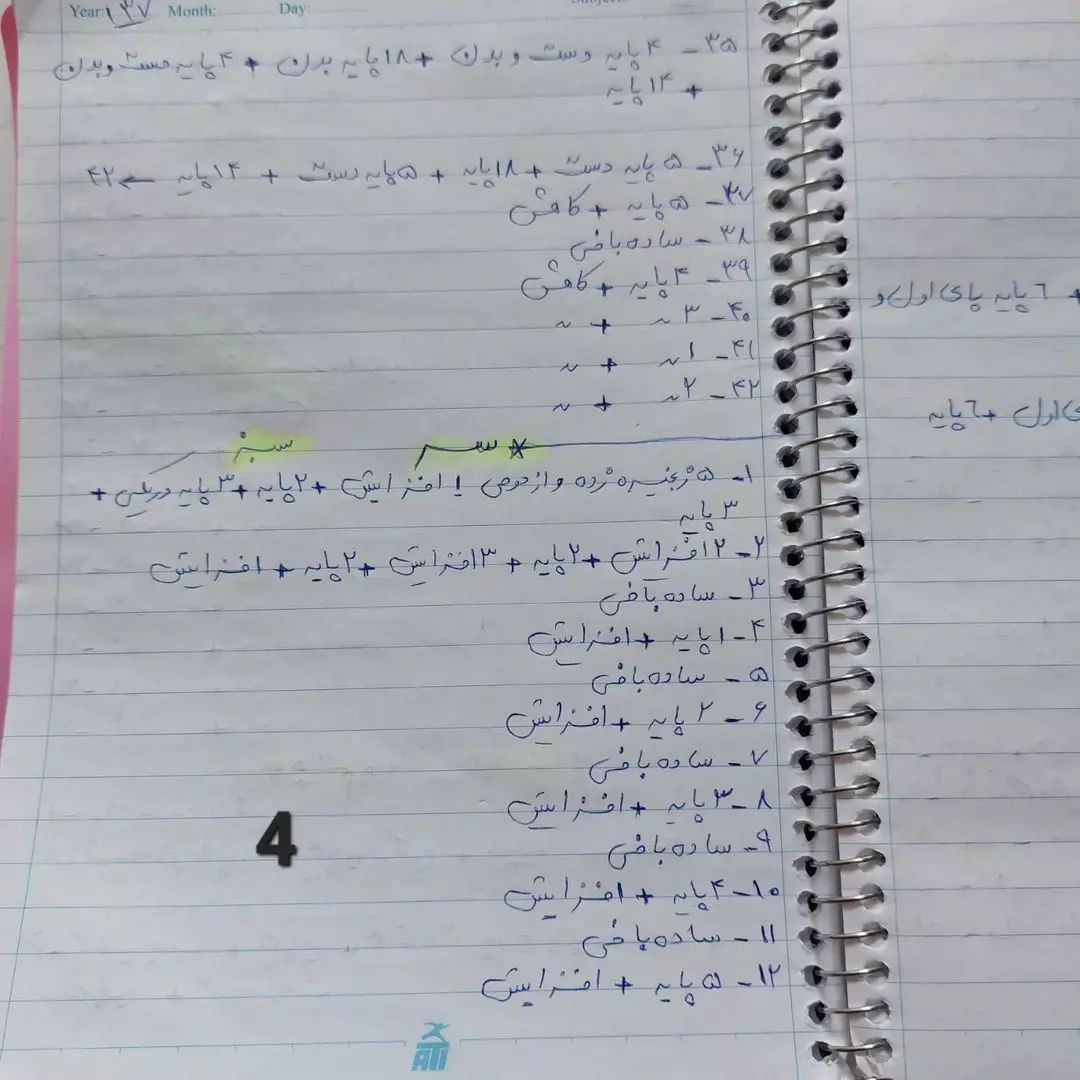 Year: ۱۳۷ Month: Day:
۳۵- ۴پایه دست و بدن + ۱۸پایه بدن + ۴پایه دست و بدن
+ ۱۴پایه
۳۶- ۵پایه دست + ۱۸پایه + ۵پایه دست + ۱۴پایه ← ۴۲
۳۷- ۵پایه + کاهش
۳۸- ساده بافی
۳۹- ۴پایه + کاهش
۴۰- ۳ ~ + ~
۴۱- ۱ ~ + ~
۴۲- ۲ ~ + ~
* سر سبز
۱- ۵ زنجیره زده و از دومی ۱ افزایش + ۲پایه + ۳پایه در یکی +
۳ پایه
۲- ۲ افزایش + ۲پایه + ۳افزایش + ۲پایه + افزایش
۳- ساده بافی
۴- ۱پایه + افزایش
۵- ساده بافی
۶- ۲ پایه + افزایش
۷- ساده بافی
۸- ۳پایه + افزایش
۹- ساده بافی
4
۱۰- ۴پایه + افزایش
۱۱- ساده بافی
۱۲- ۵ پایه + افزایش
ATI
+ ۶ پایه پای اول و
اول + ۶پایه